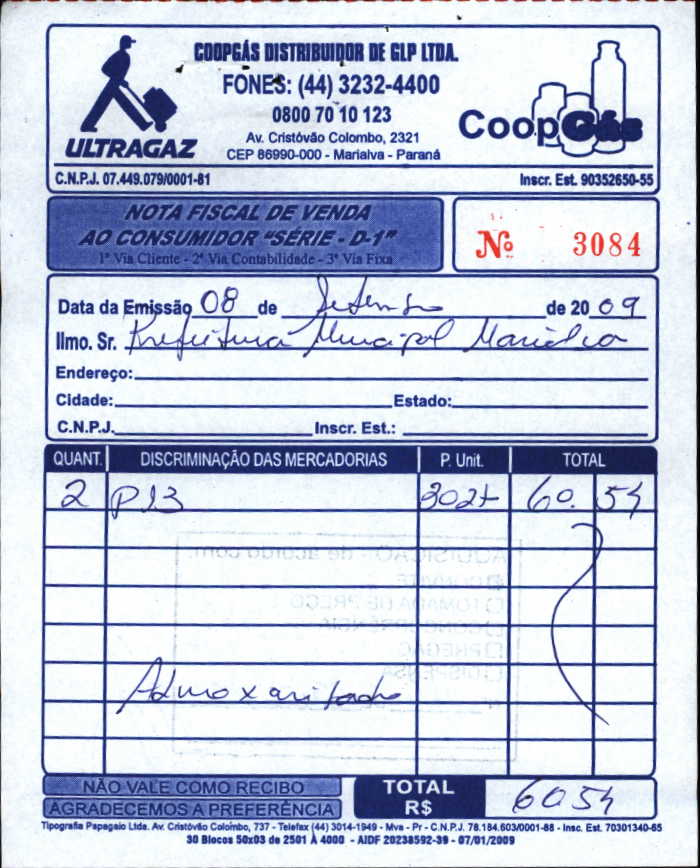 COOPGÁS DISTRIBUIDOR DE GLP LTDA.
FONES: (44) 3232-4400
0800 70 10 123
Av. Cristóvão Colombo, 2321
CEP 86990-000 - Marialva - Paraná
ULTRAGAZ
CoopGás
C.N.P.J. 07.449.079/0001-81
Inscr. Est. 90352650-55
NOTA FISCAL DE VENDA
AO CONSUMIDOR "SÉRIE - D-1"
1ª Via Cliente - 2ª Via Contabilidade - 3ª Via Fixa
Nº 3084
Data da Emissão 08 de Setembro de 2009
Ilmo. Sr. Prefeitura Municipal Marialva
Endereço:
Cidade: Estado:
C.N.P.J. Inscr. Est.:
QUANT. DISCRIMINAÇÃO DAS MERCADORIAS P. Unit. TOTAL
2 P13 3027 60.54
AQUISIÇÃO - de acordo com:
CONVITE
TOMADA DE PREÇO
CONCORRÊNCIA
PREGÃO
DISPENSA
Almoxarifado
NÃO VALE COMO RECIBO
AGRADECEMOS A PREFERÊNCIA
TOTAL R$ 6054
Tipografia Papagaio Ltda. Av. Cristóvão Colombo, 737 - Telefax (44) 3014-1949 - Mva - Pr - C.N.P.J. 78.184.603/0001-88 - Insc. Est. 70301340-65
30 Blocos 50x03 de 2501 À 4000 - AIDF 20238592-39 - 07/01/2009